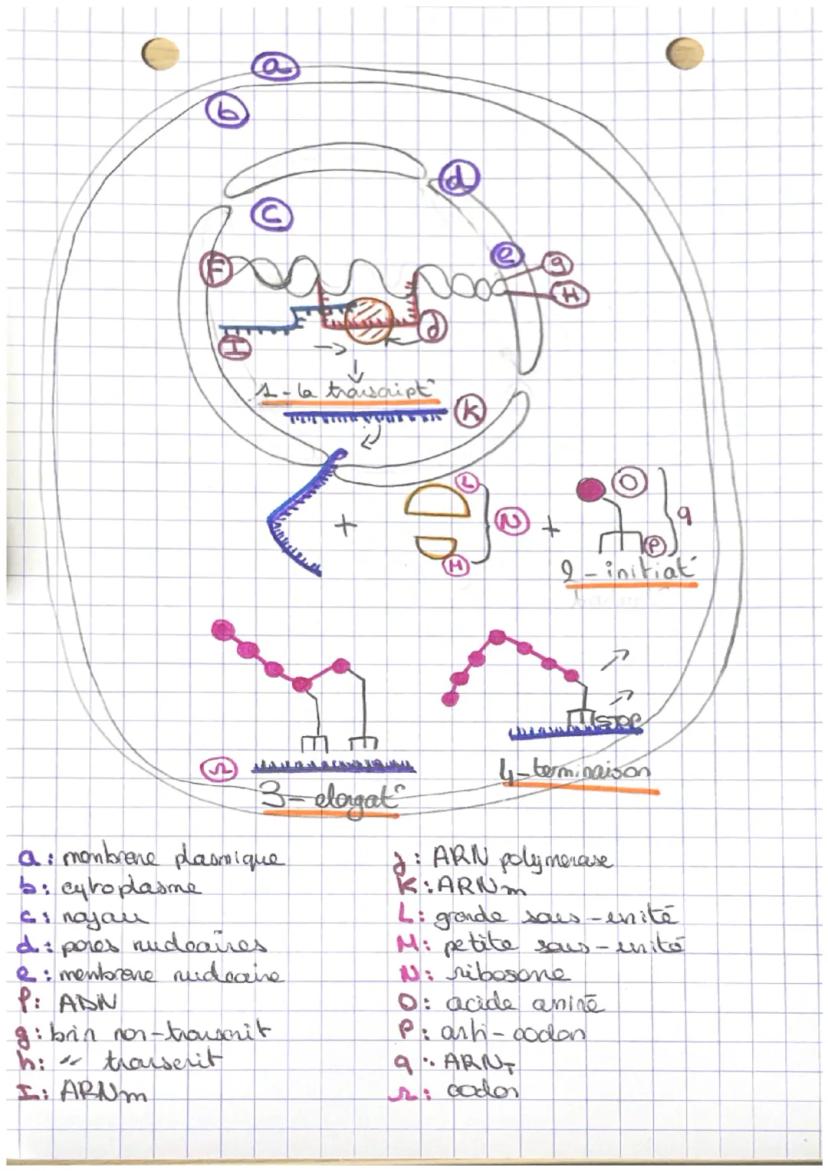 a
b
d
c
e
F
g
H
I
J
1 - la transcript°
K
L
+
N
+
O
q
M
P
2 - initiat°
STOP
r
3 - elongat°
4 - terminaison
a: membrane plasmique
b: cytoplasme
c: noyau
d: pores nucleaires
e: membrane nucleaire
f: ADN
g: brin non-transcrit
h: " transcrit
I: ARNm
j: ARN polymerase
K: ARNm
L: grande sous-unité
M: petite sous-unité
N: ribosome
O: acide aminé
P: anti-codon
q: ARNT
r: codon